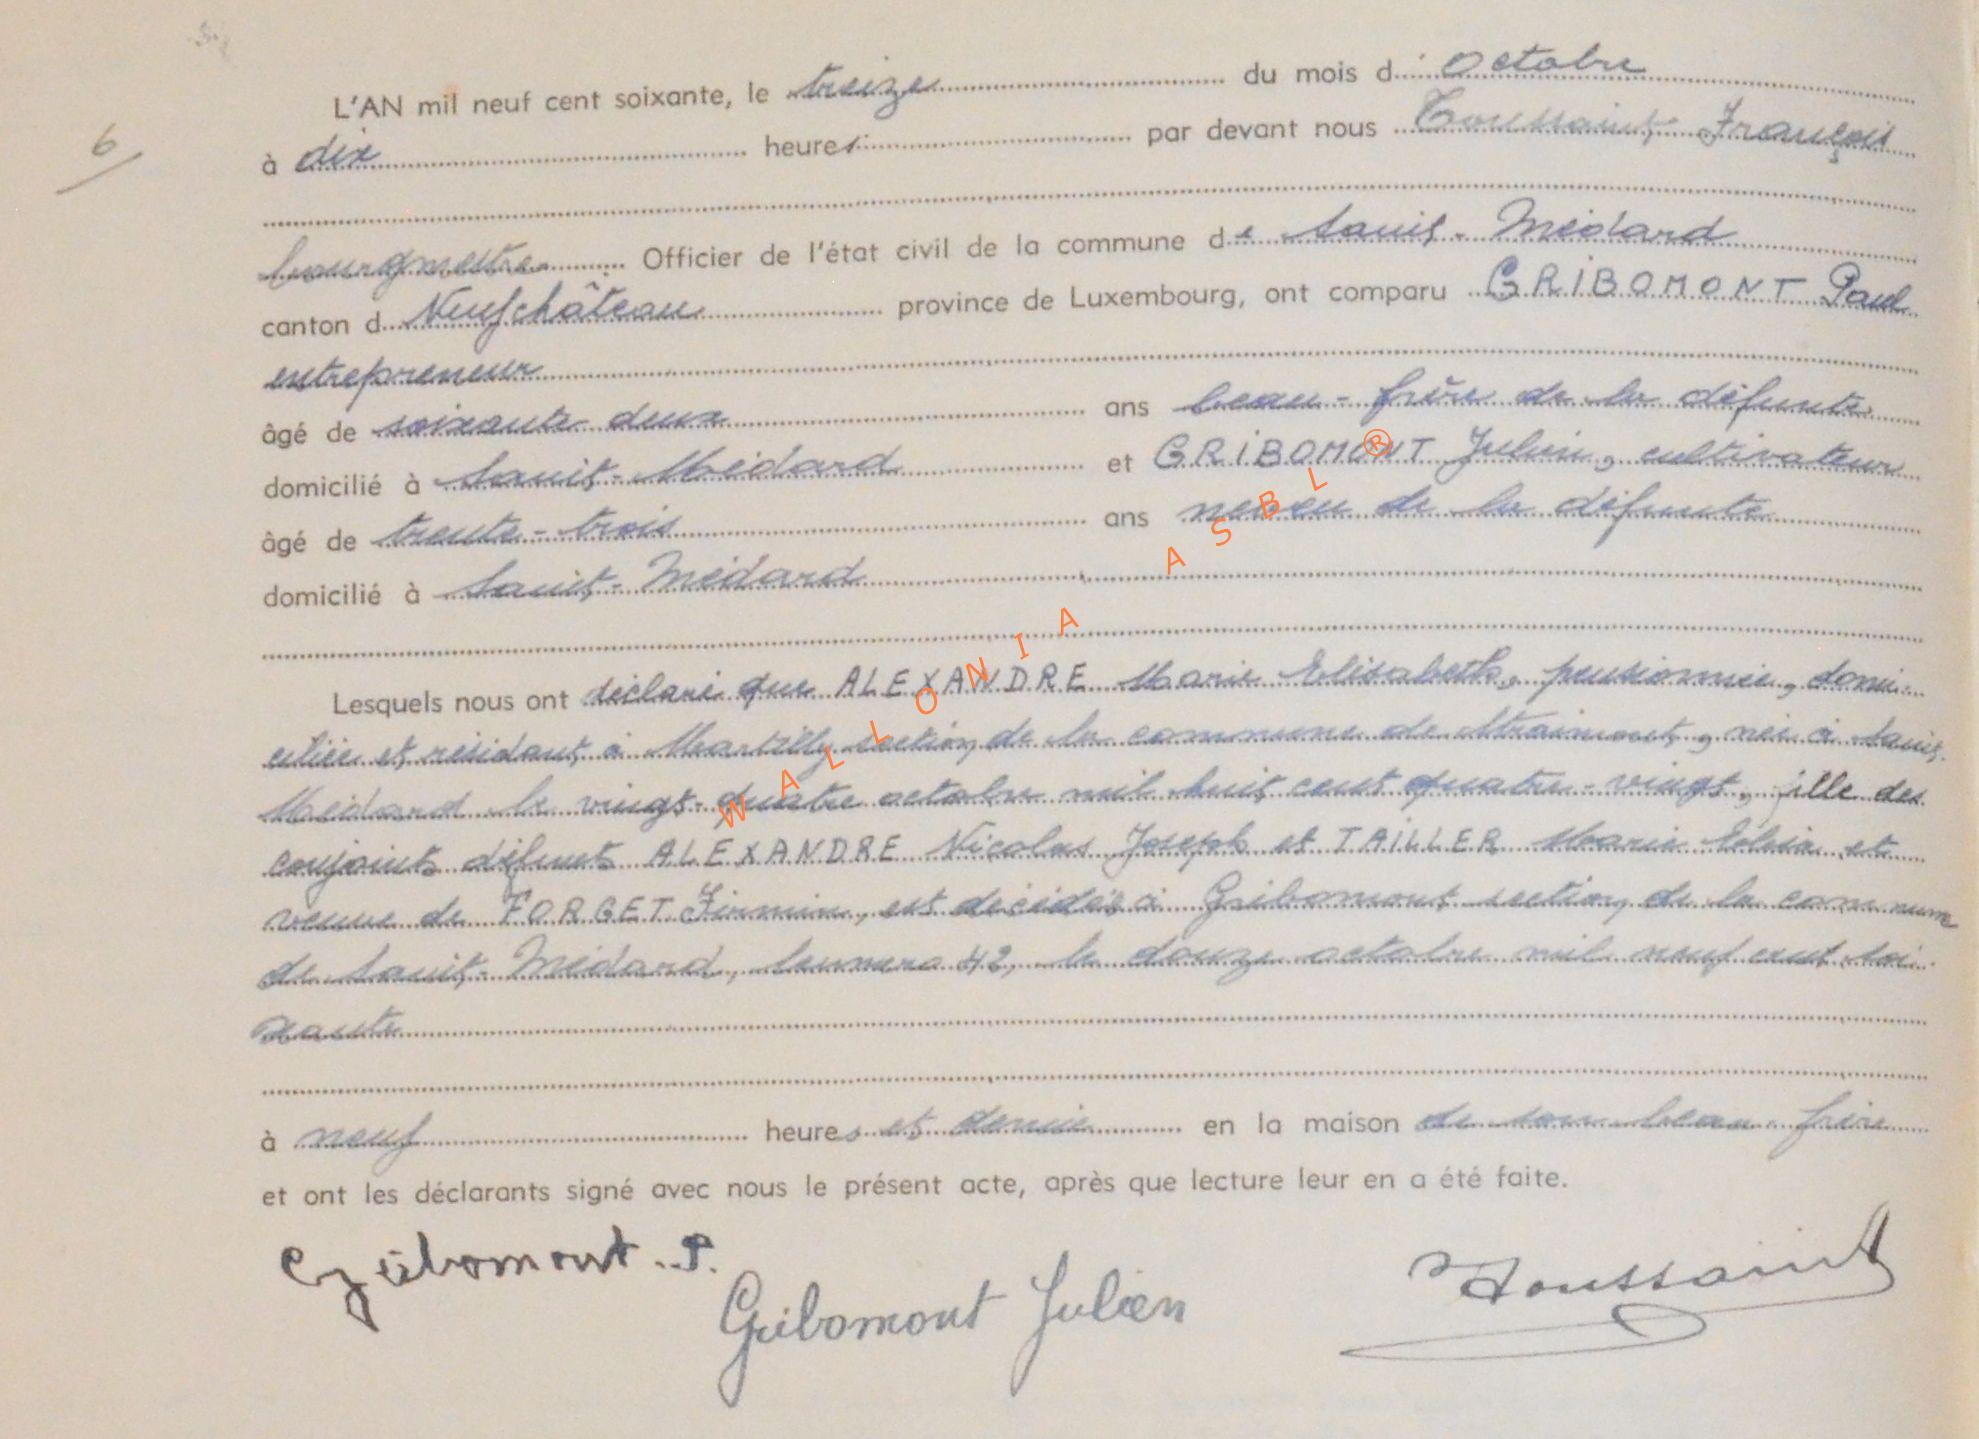 6
L'AN mil neuf cent soixante, le treize du mois d' octobre
à dix heures par devant nous Toussaint François
bourgmestre Officier de l'état civil de la commune de Saint-Médard
canton d Neufchâteau province de Luxembourg, ont comparu GRIBOMONT Paul
entrepreneur
âgé de soixante deux ans beau-frère de la défunte
domicilié à Saint-Médard et GRIBOMONT Julien, cultivateur
âgé de trente-trois ans neveu de la défunte
domicilié à Saint-Médard
Lesquels nous ont déclaré que ALEXANDRE Marie Elisabeth, pensionnée, domi-
ciliée et résidant à Martilly section de la commune de Straimont, née à Saint-
Médard le vingt-quatre octobre mil huit cent quatre-vingt, fille des
conjoints défunts ALEXANDRE Nicolas Joseph et TAILLER Marie et
veuve de FORGET Firmin, est décédée à Gribomont section de la commune
de Saint-Médard, numéro 42, le douze octobre mil neuf cent soi-
xante
à neuf heures et demie en la maison de son beau-frère
et ont les déclarants signé avec nous le présent acte, après que lecture leur en a été faite.
Gribomont. P.
Gribomont Julien
Toussaint
WALLONIA ASBL ®